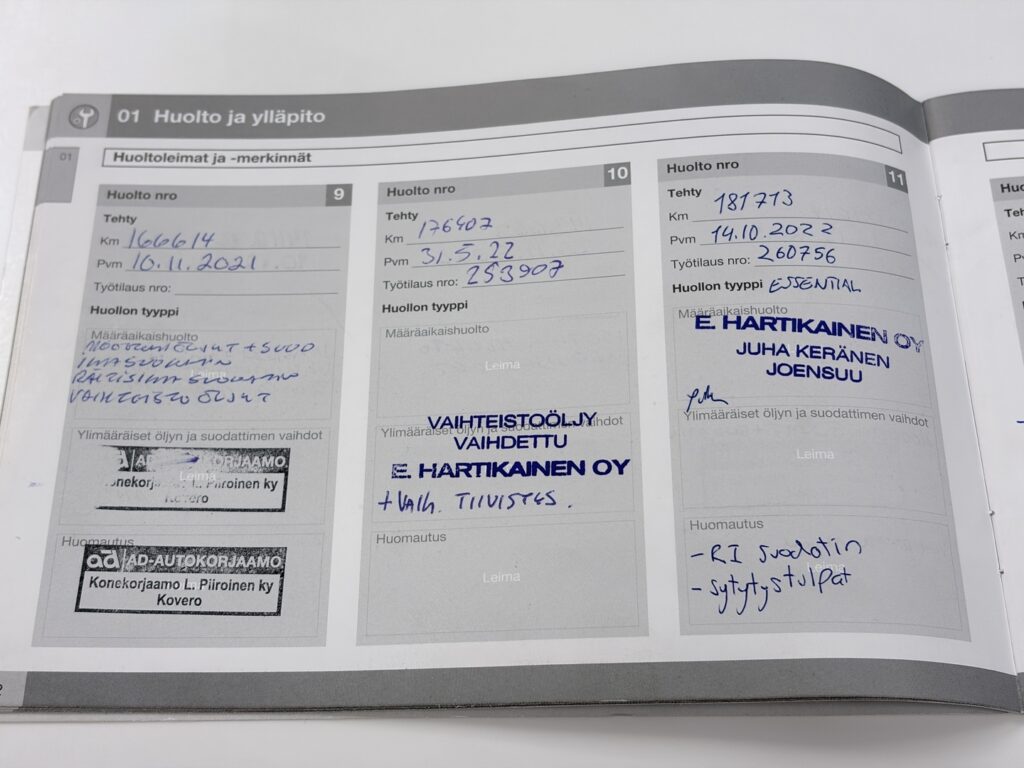 01 Huolto ja ylläpito
01
Huoltoleimat ja -merkinnät
Huolto nro 9
Tehty
Km 166614
Pvm 10.11.2021
Työtilaus nro:
Huollon tyyppi
Määräaikaishuolto
MOOTTORIÖLJYT + SUOD
ILMASUODATIN
RAITISILMA SUODATIN
VAIHTEISTO ÖLJYT
Leima
Ylimääräiset öljyn ja suodattimen vaihdot
AD-AUTOKORJAAMO
Konekorjaamo L. Piiroinen ky
Kovero
Leima
Huomautus
ad AD-AUTOKORJAAMO
Konekorjaamo L. Piiroinen ky
Kovero
Huolto nro 10
Tehty
Km 176407
Pvm 31.5.22
Työtilaus nro: 253907
Huollon tyyppi
Määräaikaishuolto
Leima
Ylimääräiset öljyn ja suodattimen vaihdot
VAIHTEISTOÖLJY
VAIHDETTU
E. HARTIKAINEN OY
+ VAIH. TIIVISTYS.
Huomautus
Leima
Huolto nro 11
Tehty
Km 181713
Pvm 14.10.2022
Työtilaus nro: 260756
Huollon tyyppi ESSENTIAL
Määräaikaishuolto
E. HARTIKAINEN OY
JUHA KERÄNEN
JOENSUU
Ylimääräiset öljyn ja suodattimen vaihdot
Leima
Huomautus
- RI suodatin
- sytytystulpat